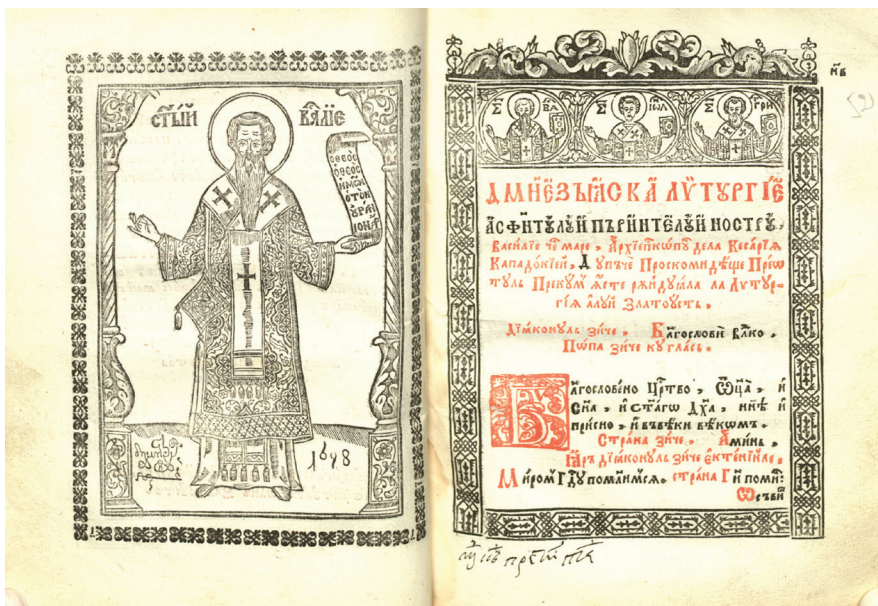 СТ҃ЫЙ ВАСИЛІЕ
ОѲЕОС
ОѲЕОС
ИМѠ
ОТОН
ꙊРАН
ІОНА
1698
ВА
ІѠА
ГРИ
Д҃МНЕЗѢꙖСКА ЛѴТꙊРГІЕ
АСФНТꙊЛꙊЙ ПЪРИНТЕЛꙊЙ НОСТРꙊ,
Василіе чѣ маре, Архїепкѡпꙋ дела Кесаріꙗ
Кападокїей, Дꙋпъче Проскомидѣще Преѡ
тꙋль Прекꙋм ꙗсте рѫндꙋꙗла ла Лѵтꙋр-
гїꙗ алꙋй Златоꙋсть.
Дїаконꙋль зиче, Благослови влⷣко,
Попа зиче кꙋ гласъ.
Блгословено Цртво, Оц҃а, и
Сн҃а, и ст҃агѡ Дх҃а, нн҃ѣ и
присно, и въвѣки вѣкѡмъ.
Страна зиче, Аминь,
Ꙗръ дїаконꙋль зиче ектенїиле,
Миром Гдꙋ помлимсѧ, страна Ги помⷧ҇и: